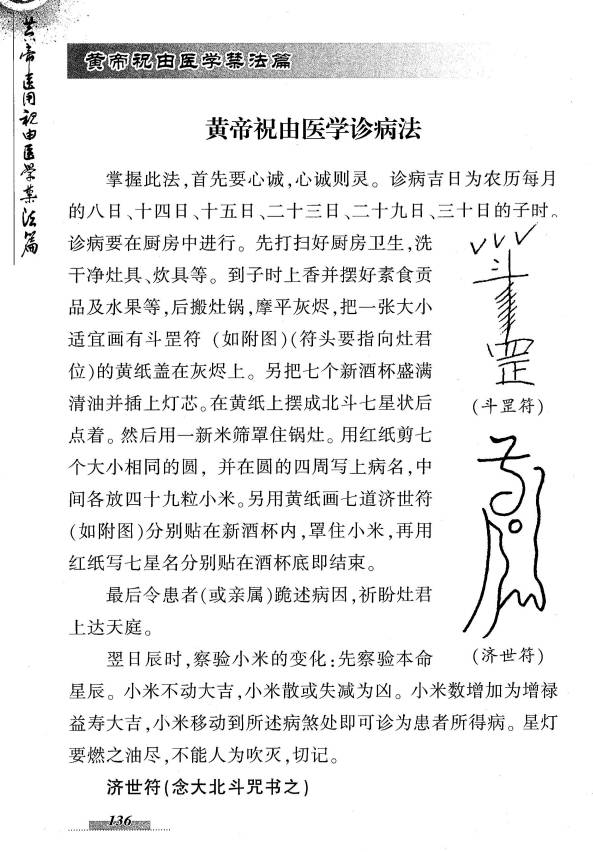 黄帝医用祝由医学禁法篇
黄帝祝由医学禁法篇
黄帝祝由医学诊病法
掌握此法,首先要心诚,心诚则灵。诊病吉日为农历每月
的八日、十四日、十五日、二十三日、二十九日、三十日的子时。
诊病要在厨房中进行。先打扫好厨房卫生,洗
干净灶具、炊具等。到子时上香并摆好素食贡
品及水果等,后搬灶锅,摩平灰烬,把一张大小
适宜画有斗罡符(如附图)(符头要指向灶君
位)的黄纸盖在灰烬上。另把七个新酒杯盛满
清油并插上灯芯。在黄纸上摆成北斗七星状后
点着。然后用一新米筛罩住锅灶。用红纸剪七
个大小相同的圆,并在圆的四周写上病名,中
间各放四十九粒小米。另用黄纸画七道济世符
(如附图)分别贴在新酒杯内,罩住小米,再用
红纸写七星名分别贴在酒杯底即结束。
(斗罡符)
最后令患者(或亲属)跪述病因,祈盼灶君
上达天庭。
翌日辰时,察验小米的变化:先察验本命
(济世符)
星辰。小米不动大吉,小米散或失减为凶。小米数增加为增禄
益寿大吉,小米移动到所述病煞处即可诊为患者所得病。星灯
要燃之油尽,不能人为吹灭,切记。
济世符(念大北斗咒书之)
136